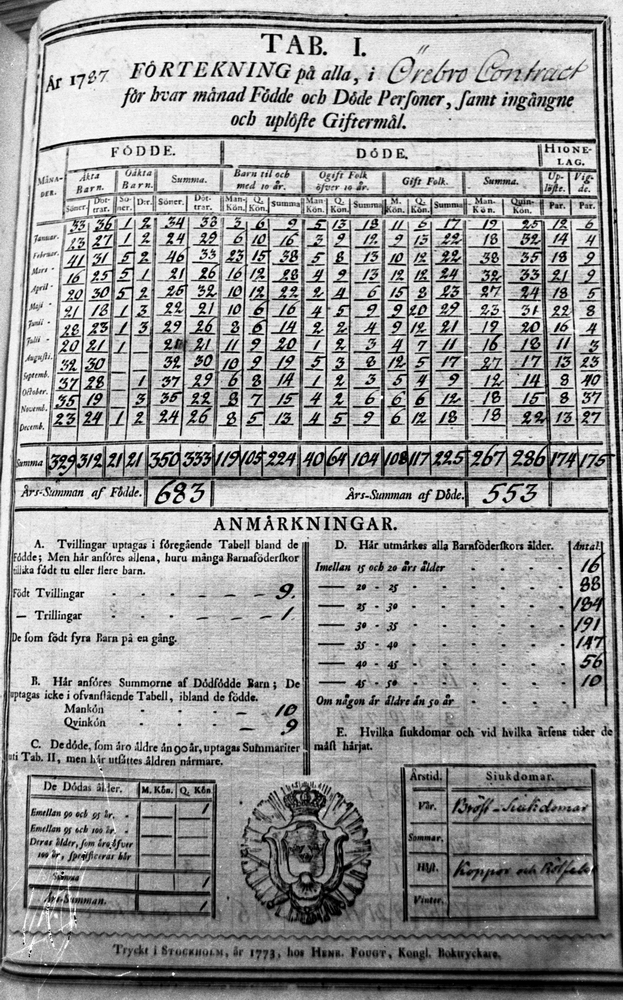 TAB. I.
År 1787 FÖRTEKNING på alla, i Örebro Contract
för hvar månad Födde och Döde Personer, samt ingångne
och uplöste Giftermål.
MÅNADER. FÖDDE. DÖDE. HIONELAG.
Äkta Barn. Oäkta Barn. Summa. Barn til och med 10 år. Ogift Folk öfver 10 år. Gift Folk. Summa. Uplöste. Vigde.
Söner. Döttrar. Söner. Dr. Söner. Döttrar. Man-Kön. Q. Kön. Summa Man Kön Q. Kön. Summa M. Kön. Q. Kön. Summa Man-Kön. Quin-Kön. Par. Par.
Januar. 33 36 1 2 34 38 3 6 9 5 13 18 11 6 17 19 25 12 6
Februar. 23 27 1 2 24 29 6 10 16 3 9 12 9 13 22 18 32 14 4
Mars 41 31 5 2 46 33 23 15 38 5 8 13 10 12 22 38 35 18 9
April 16 25 5 1 21 26 16 12 28 4 9 13 12 12 24 32 33 21 9
Maji 20 30 5 2 25 32 10 12 22 2 4 6 15 8 23 27 24 18 5
Junii 21 18 1 3 22 21 10 6 16 4 5 9 9 20 29 23 31 22 8
Julii 28 23 1 3 29 26 8 6 14 2 2 4 9 12 21 19 20 16 4
Augusti. 20 21 1 21 21 11 9 20 1 2 3 4 7 11 16 18 11 3
Septemb. 32 30 32 30 10 9 19 5 3 8 12 5 17 27 17 13 23
October. 37 28 1 37 29 6 8 14 1 2 3 5 4 9 12 14 8 40
Novemb. 35 19 3 35 22 8 7 15 4 2 6 6 6 12 18 15 8 37
Decemb. 23 24 1 2 24 26 8 5 13 4 5 9 6 12 18 18 22 13 27
Summa 329 312 21 21 350 333 119 105 224 40 64 104 108 117 225 267 286 174 175
Års-Summan af Födde. 683 Års-Summan af Döde. 553
ANMÄRKNINGAR.
A. Tvillingar uptagas i föregående Tabell bland de
Födde; Men här anföres allena, huru många Barnaföderskor
tillika födt tu eller flere barn.
Födt Tvillingar 9.
— Trillingar 1.
De som födt fyra Barn på en gång.
B. Här anföres Summorne af Dödfödde Barn; De
uptagas icke i ofvanstående Tabell, ibland de födde.
Mankön 10
Qvinkön 9
C. De döde, som äro äldre än 90 år, uptagas Summariter
uti Tab. II, men här utsättes åldren närmare.
De Dödas ålder. M. Kön. Q. Kön
Emellan 90 och 95 år. 1
Emellan 95 och 100 år.
Deras ålder, som äro öfver
100 år, specificeras här
Summa 1
Års-Summan. 1
D. Här utmärkes alla Barnföderskors ålder. Antal
Imellan 15 och 20 års ålder 16
— 20 - 25 88
— 25 - 30 184
— 30 - 35 191
— 35 - 40 147
— 40 - 45 56
— 45 - 50 10
Om någon är äldre än 50 år
E. Hvilka siukdomar och vid hvilka årsens tider de
mäst härjat.
Årstid. Siukdomar.
Vår. Bröst-Siukdomar
Sommar.
Höst. Koppor och Rötfeber
Vinter.
Tryckt i STOCKHOLM, år 1773, hos HENR. FOUGT, Kongl. Boktryckare.